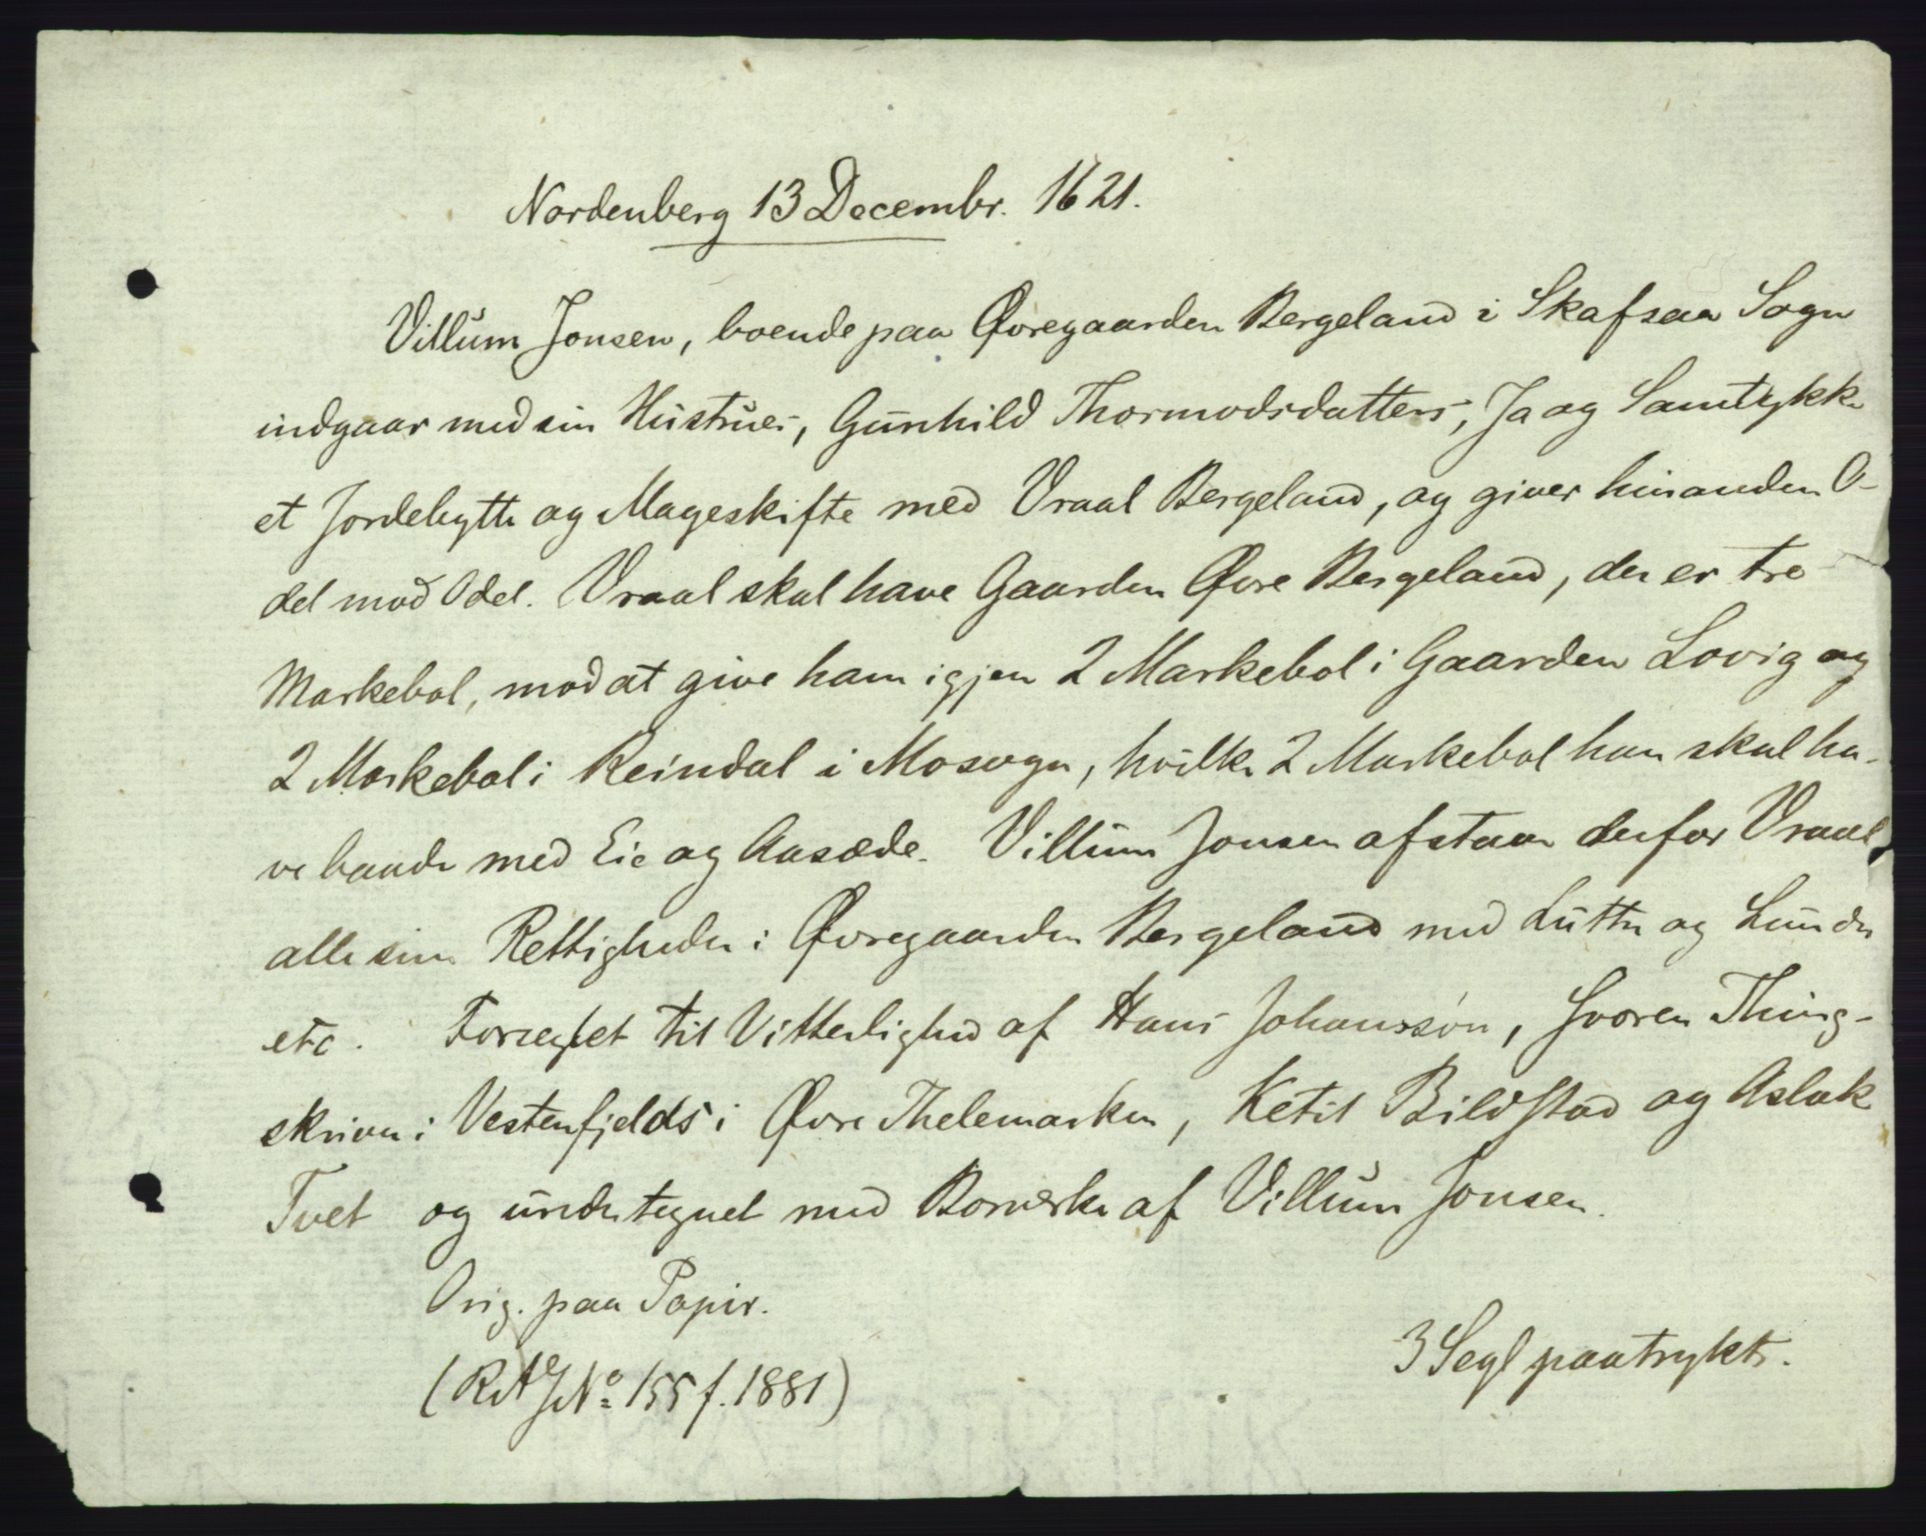 Nordenberg 13 Decembr. 1621.
Villum Jonsen, boende paa Øvregaarden Bergeland i Skafsaa Sogn
indgaar med sin Hustrues, Gunhild Thormodsdatters, Ja og Samtykke
et Jordebytte og Mageskifte med Vraal Bergeland, og giver hinanden O-
del mod Odel. Vraal skal have Gaarden Øvre Bergeland, der er tre
Markebol, mod at give ham igjen 2 Markebol i Gaarden Lovig og
2 Markebol i Reindal i Mosogn, hvilke 2 Markebol han skal ha-
ve baade med Eie og Aasæde. Villum Jonsen afstaar derfor Vraal
alle sine Rettigheder i Øvregaarden Bergeland med Lutter og Lunder
etc. Forseglet til Vitterlighed af Hans Johanssøn, svoren Thing-
skriver i Vestenfjelds i Øvre Thelemarken, Ketil Bildstad og Aslak
Tvet og undertegnet med Bomærke af Villum Jonsen.
Orig. paa Papir.
3 Segl paatrykte.
(RA J No 155 f. 1881)